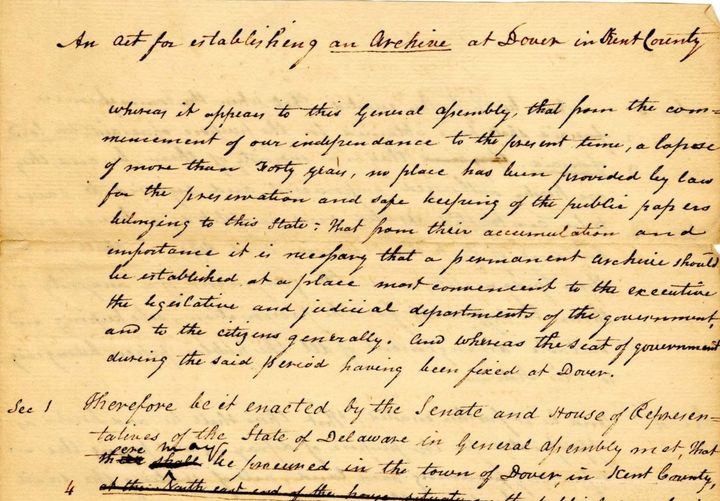 An Act for establishing an Archive at Dover in Kent County
whereas it appears to this General Assembly, that from the com-
mencement of our independance to the present time, a lapse
of more than Forty years, no place has been provided by law
for the preservation and safe keeping of the public papers
belonging to this State: That from their accumulation and
importance it is necessary that a permanent Archive should
be established at a place most convenient to the executive
the legislative and judicial departments of the government,
and to the citizens generally. And whereas the seat of government
during the said period having been fixed at Dover.
Sec 1 Therefore be it enacted by the Senate and House of Represen-
tatives of the State of Delaware in General Assembly met, That
ere may
th shall be procured in the town of Dover, in Kent County,
4 at the North east end of the house situate